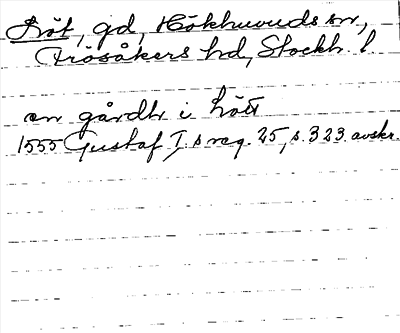 Hököhuvuds sn,
Frösåkers hd, Stockh. l.
en gårdh i hött
1555 Gustaf I,s reg. 25, s. 323 avskr.